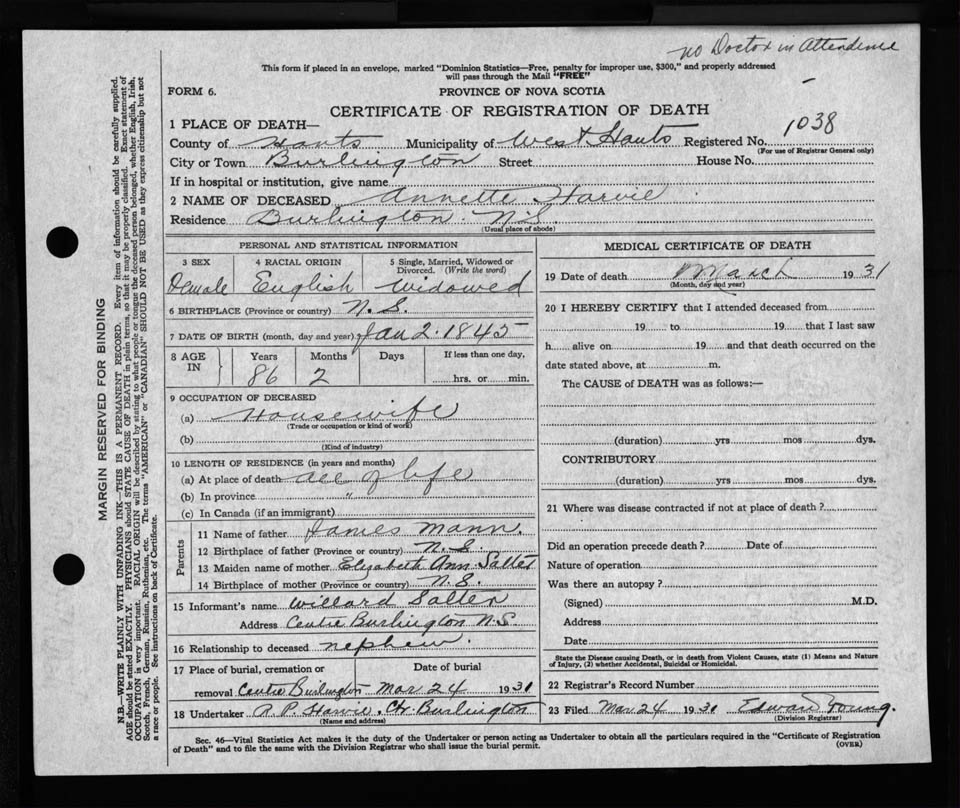 no Doctor in Attendence
This form if placed in an envelope, marked "Dominion Statistics—Free, penalty for improper use, $300," and properly addressed
will pass through the Mail "FREE"
FORM 6.
PROVINCE OF NOVA SCOTIA
CERTIFICATE OF REGISTRATION OF DEATH
1 PLACE OF DEATH—
County of Hants Municipality of West Hants Registered No. 1038
(For use of Registrar General only)
City or Town Burlington Street House No.
If in hospital or institution, give name
2 NAME OF DECEASED Annette Harvie
Residence Burlington N.S
(Usual place of abode)
PERSONAL AND STATISTICAL INFORMATION
3 SEX 4 RACIAL ORIGIN 5 Single, Married, Widowed or
Divorced. (Write the word)
Female English Widowed
6 BIRTHPLACE (Province or country) N.S.
7 DATE OF BIRTH (month, day and year) Jan 2. 1845
8 AGE IN Years Months Days If less than one day,
86 2 hrs. or min.
9 OCCUPATION OF DECEASED
(a) Housewife
(Trade or occupation or kind of work)
(b)
(Kind of industry)
10 LENGTH OF RESIDENCE (in years and months)
(a) At place of death all of life
(b) In province "
(c) In Canada (if an immigrant)
Parents
11 Name of father James Mann.
12 Birthplace of father (Province or country) N.S.
13 Maiden name of mother Elizabeth Ann Salter
14 Birthplace of mother (Province or country) N.S.
15 Informant's name Willard Salter
Address Centre Burlington N.S
16 Relationship to deceased nephew.
17 Place of burial, cremation or Date of burial
removal Centre Burlington Mar 24 1931
18 Undertaker R. P. Harvie, Ctr. Burlington
(Name and address)
MEDICAL CERTIFICATE OF DEATH
19 Date of death March 1931
(Month, day and year)
20 I HEREBY CERTIFY that I attended deceased from
19 to 19 that I last saw
h alive on 19 and that death occurred on the
date stated above, at m.
The CAUSE of DEATH was as follows:—
(duration) yrs mos dys.
CONTRIBUTORY
(duration) yrs mos dys.
21 Where was disease contracted if not at place of death?
Did an operation precede death? Date of
Nature of operation
Was there an autopsy?
(Signed) M.D.
Address
Date
State the Disease causing Death, or in death from Violent Causes, state (1) Means and Nature
of Injury, (2) whether Accidental, Suicidal or Homicidal.
22 Registrar's Record Number
23 Filed Mar 24 1931 Edward Young.
(Division Registrar)
Sec. 46—Vital Statistics Act makes it the duty of the Undertaker or person acting as Undertaker to obtain all the particulars required in the "Certificate of Registration
of Death" and to file the same with the Division Registrar who shall issue the burial permit.
(OVER)
MARGIN RESERVED FOR BINDING
N.B.—WRITE PLAINLY WITH UNFADING INK—THIS IS A PERMANENT RECORD. Every item of information should be carefully supplied.
AGE should be stated EXACTLY. PHYSICIANS should STATE CAUSE OF DEATH in plain terms, so that it may be properly classified. Exact statement of
OCCUPATION is very important. RACIAL ORIGIN will be described by stating to what people or tongue the deceased person belonged, whether English, Irish,
Scotch, French, German, Russian, Ruthenian, etc. The terms "AMERICAN" or "CANADIAN" SHOULD NOT BE USED as they express citizenship but not
a race or people. See instructions on back of Certificate.